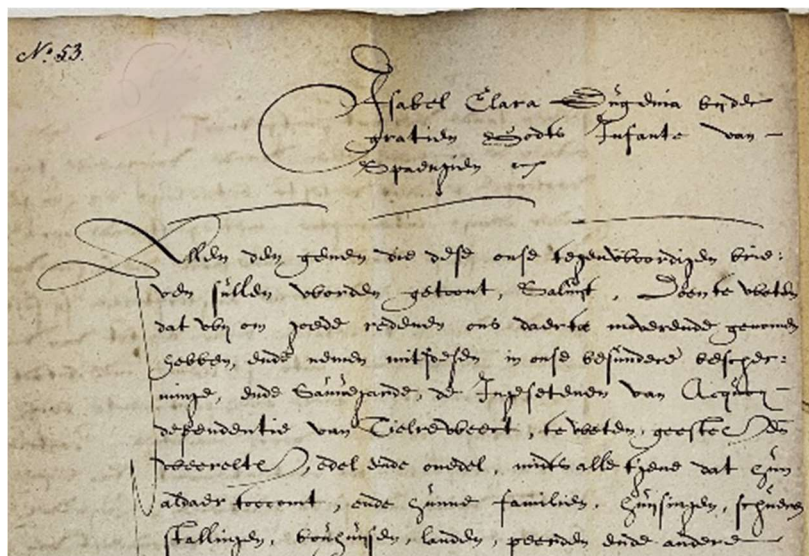 No. 53.
Isabel Clara Eugenia bijder
gratien Godts Infante van
Spaengien &c
Allen den genen die dese onse tegenwoordigen brie:
ven sullen worden getoont, Saluijt, Doen te weten
dat wij om goede redenen ons daertoe moverende genomen
hebben, ende nemen mitsdesen in onse besundere bescher:
minge, ende Sauvegarde, de Ingesetenen van Acquoy
dependentie van Tielreweert, te weten, geestel. en
weereltl., edel ende onedel, mits alle tgene dat hun
aldaer toecomt, ende hunne familien, huijsingen, schueren
stallingen, bouhuijsen, landen, peerden ende andere